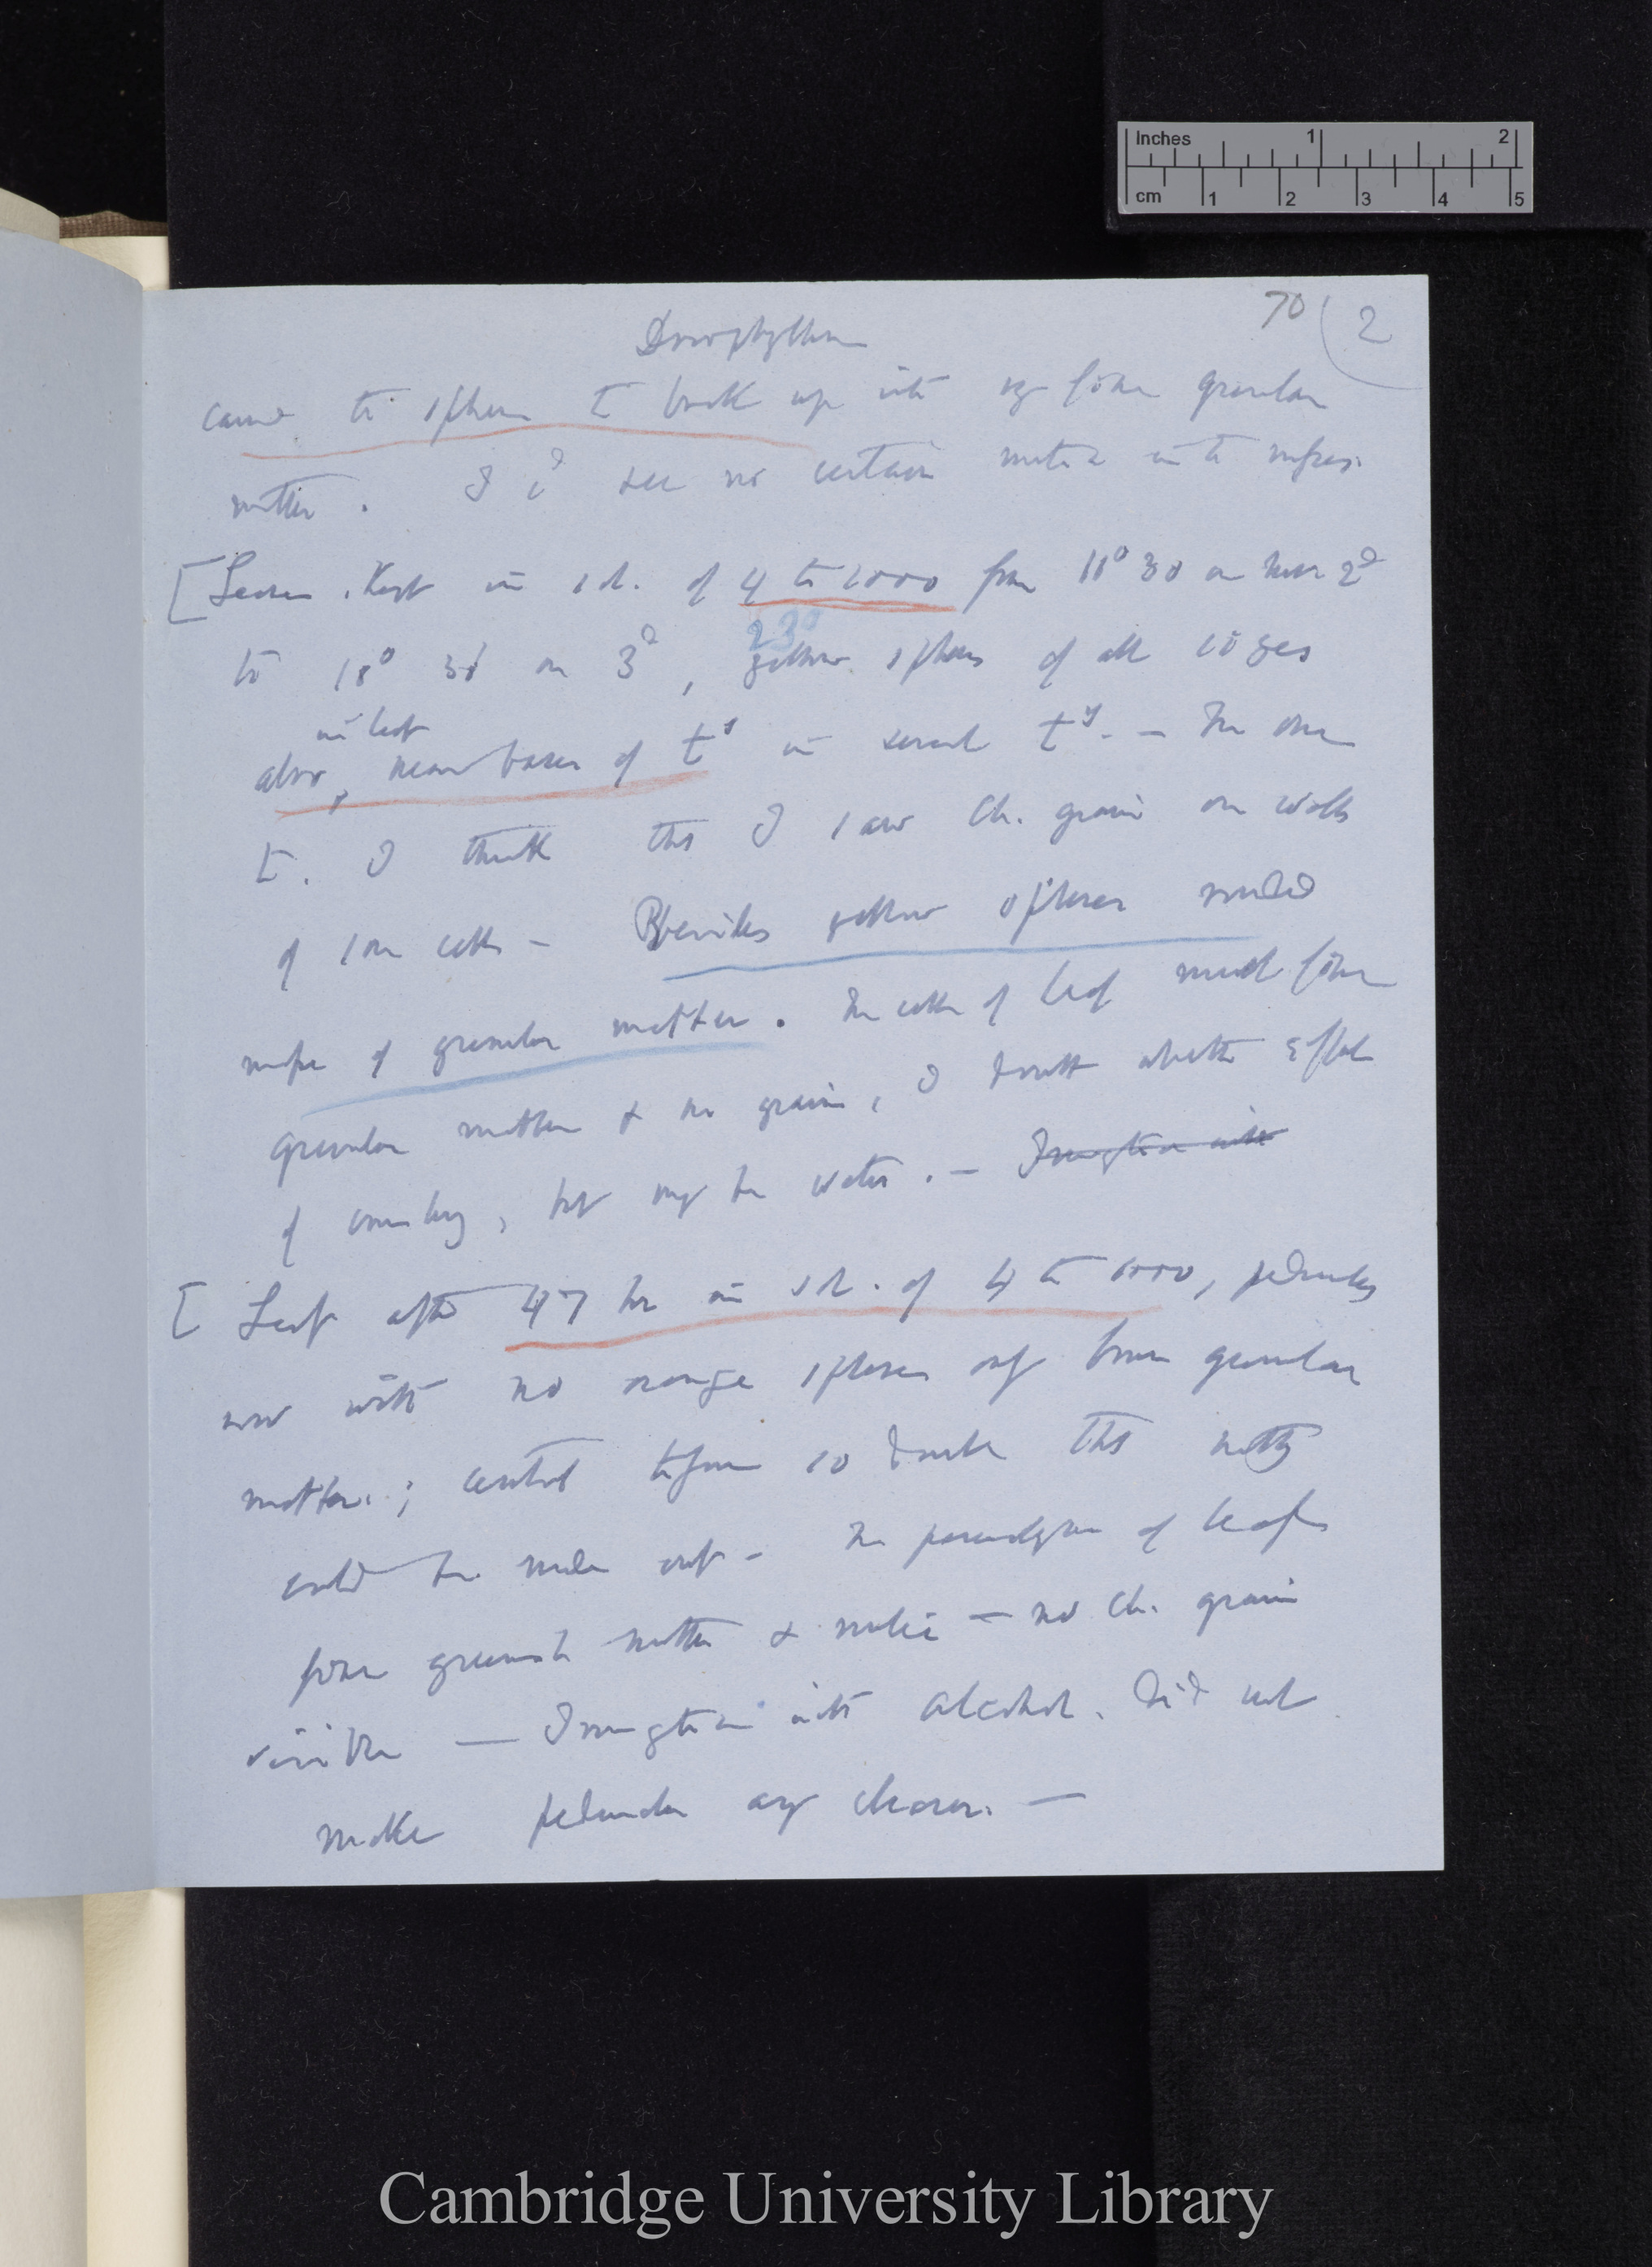 Inches 1 2
cm 1 2 3 4 5
70 (2
Drosophyllum
came the spheres to break up into v. fine granular
matter. I cd see no certain in the
[Leaves. Kept in sol. of 4 to 1000 from 11° 30 on 2d
23°
to 10° 30 on 3d, yellow spheres of all sizes
in leaf
also, near bases of ts in several ts. — In one
t. I think that I saw Ch. grains on walls
of some cells — Besides yellow spheres
of granular matter. The cells of leaf much fine
granular matter & no grains, I doubt whether effect
of , but may be water. — Irrigation with
[Leaf after 47 hr in sol. of 4 to 1000, peduncles
now with no orange spheres only brown granular
matter; central so dark that nothing
could be made out — The parenchyma of leaf
fine greenish matter & nuclei — no Ch. grains
visible — Irrigation with alcohol. did not
make peduncles any clearer. —
Cambridge University Library